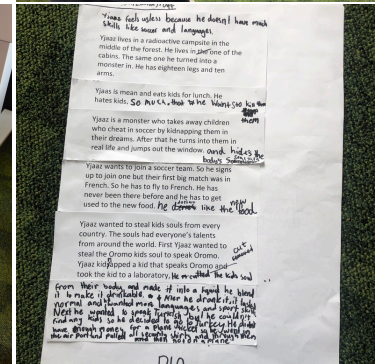 Yjaaz feels usless because he doesn't have much
skills like soccer and languages.
Yjaaz lives in a radioactive campsite in the
middle of the forest. He lives in one of the
cabins. The same one he turned into a
monster in. He has eighteen legs and ten
arms.
Yjaas is mean and eats kids for lunch. He
hates kids. So much that he wants to kill
them
Yjaaz is a monster who takes away children
who cheat in soccer by kidnapping them in
their dreams. After that he turns into them in
real life and jumps out the window. and hides the
body's
Yjaaz wants to join a soccer team. So he signs
up to join one but their first big match was in
French. So he has to fly to French. He has
never been there before and he has to get
used to the new food. he like the new food
Yjaaz wanted to steal kids souls from every
country. The souls had everyone's talents
from around the world. First Yjaaz wanted to
steal the Oromo kids soul to speak Oromo.
Yjaaz kidnapped a kid that speaks Oromo and
took the kid to a laboratory. He the kids soul
from their body and made it into a liquid he blend
it to make it drinkable. After he drank it, it tasted
normal and wanted more languages and sport skills
Next he wanted to speak Turkish but he couldn't
find any kids so he decided to go to Turkey. He didn't
have enough money for a plane ticket so he went in
the airport and pulled all security shirts and threw them
and then got on a plane